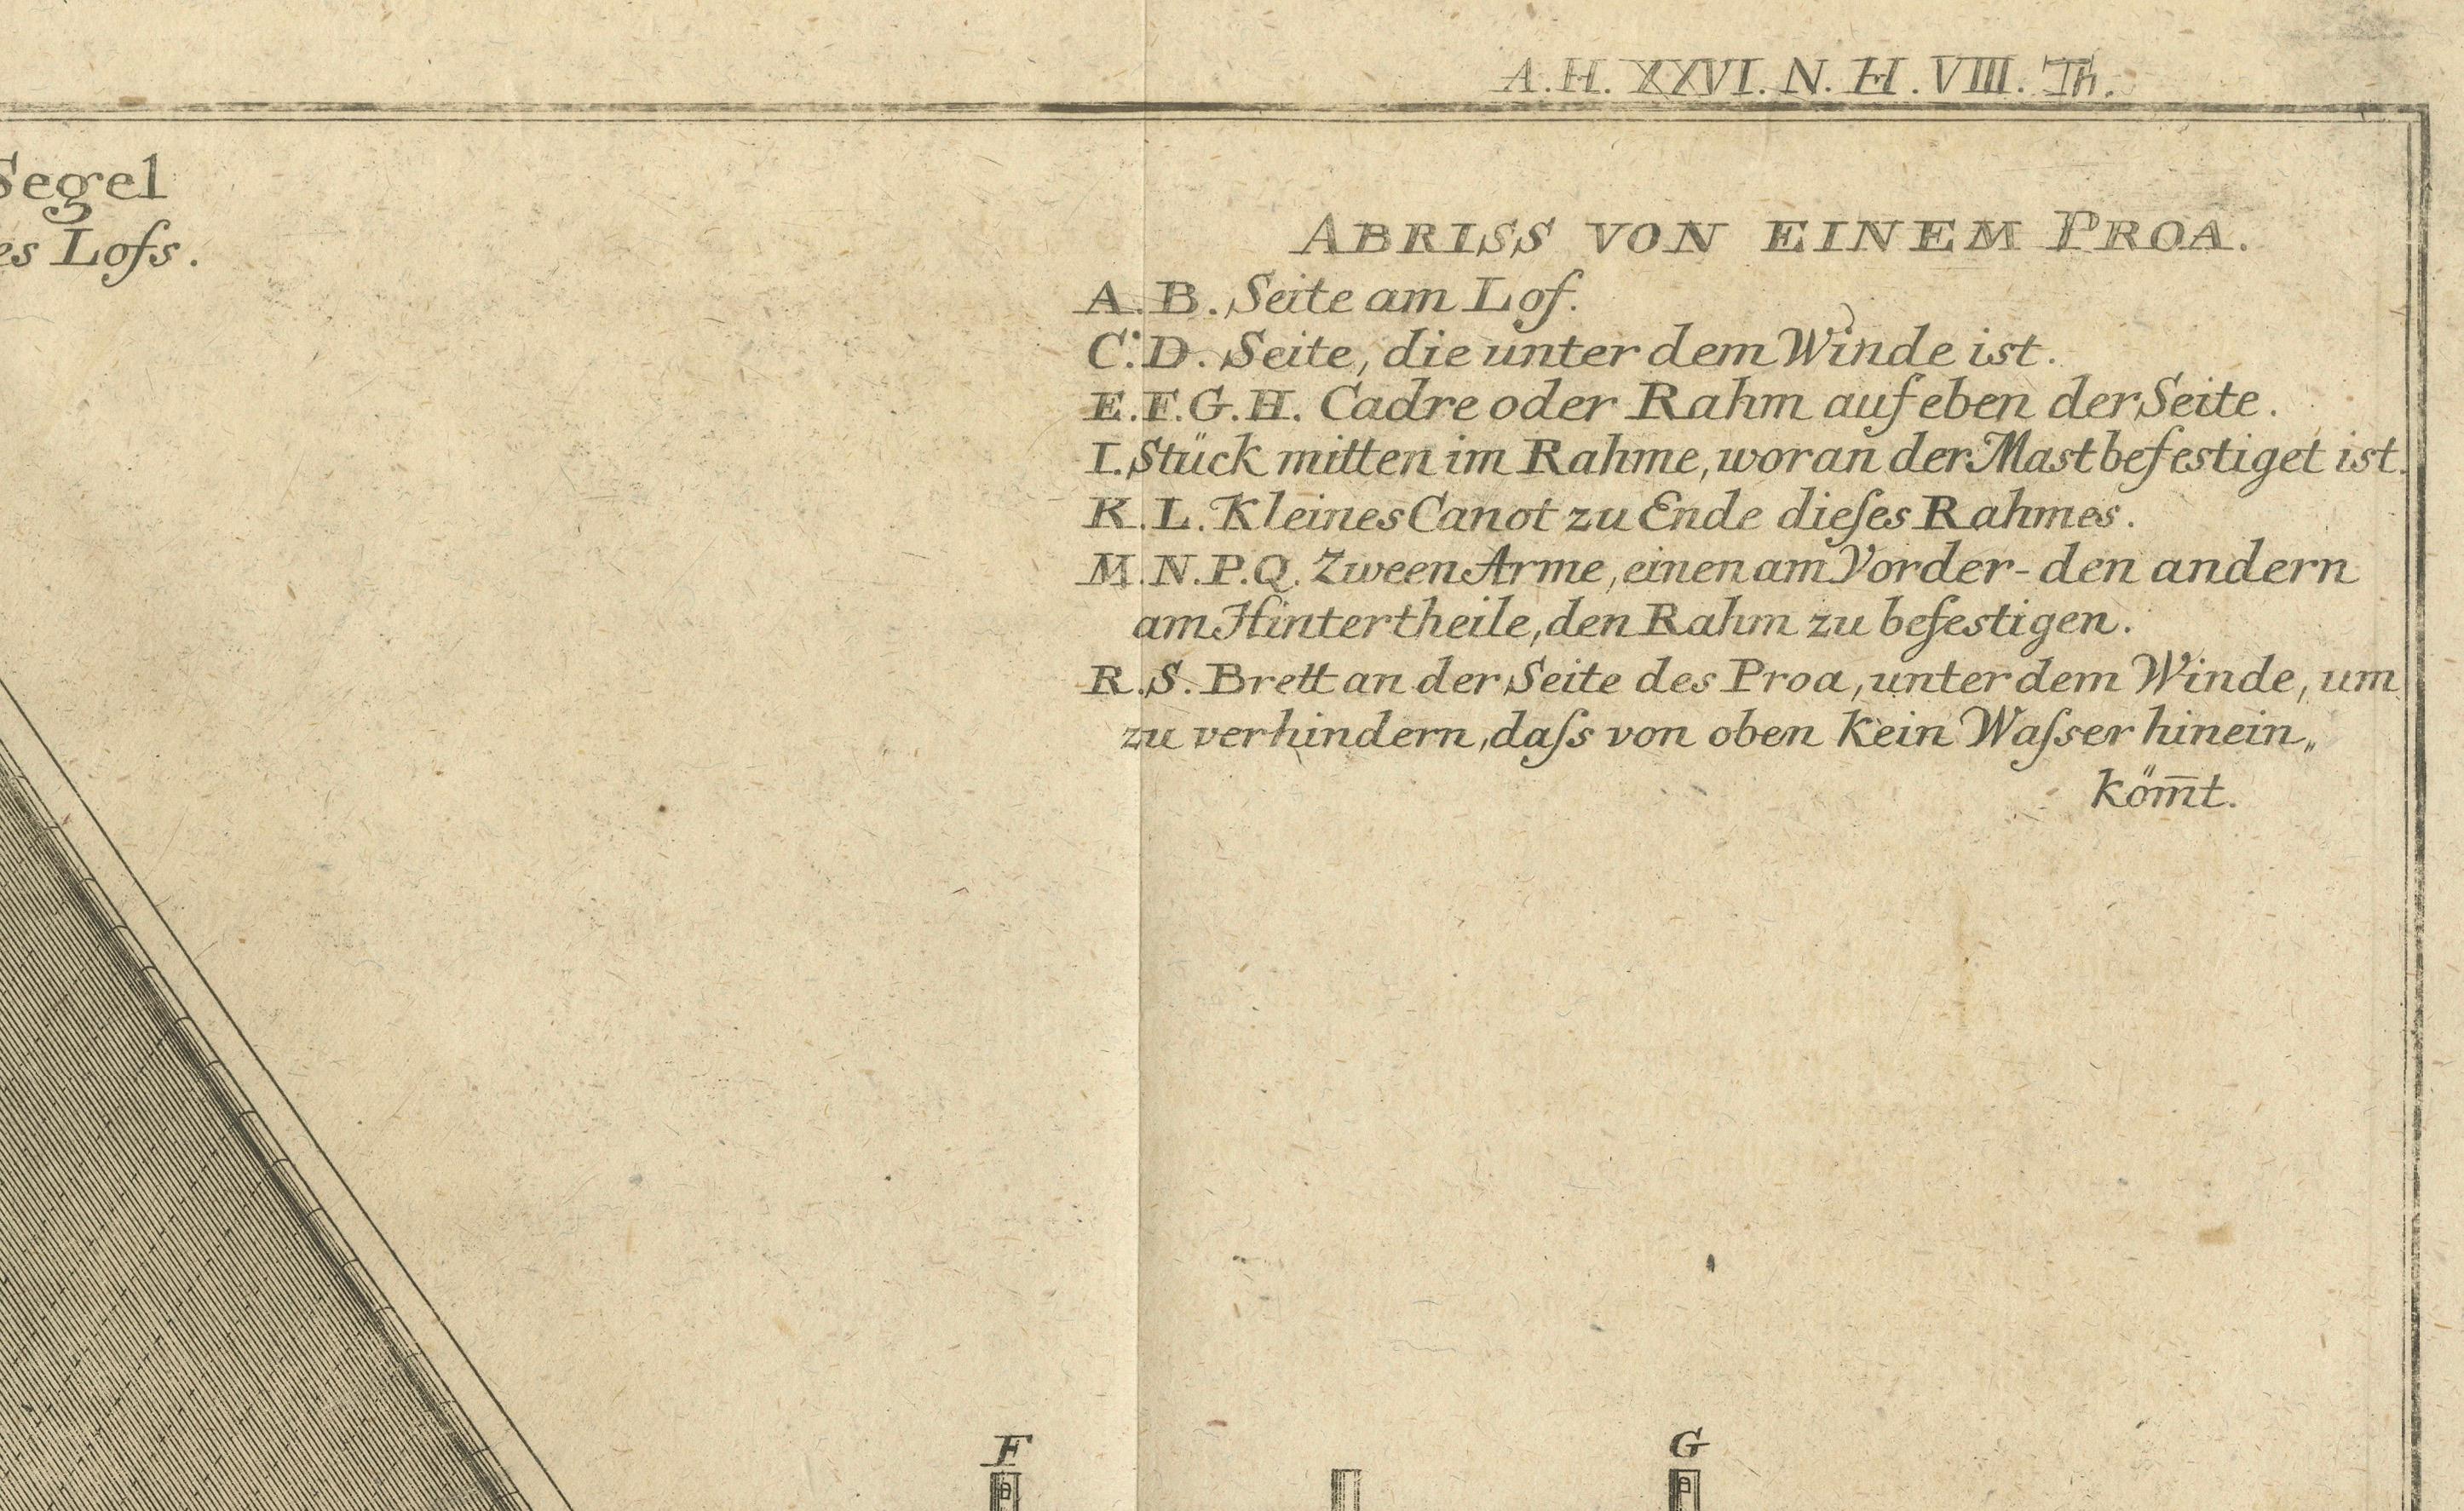 A.H. XXVI. N. H. VIII. Th.
Segel
es Lofs.
ABRISS VON EINEM PROA.
A.B. Seite am Lof.
C.D. Seite, die unter dem Winde ist.
E.F.G.H. Cadre oder Rahm auf eben der Seite.
I. Stück mitten im Rahme, woran der Mast befestiget ist.
K.L. Kleines Canot zu Ende dieſes Rahmes.
M.N.P.Q. Zween Arme, einen am Vorder- den andern
am Hintertheile, den Rahm zu befestigen.
R.S. Brett an der Seite des Proa, unter dem Winde, um
zu verhindern, daſs von oben kein Waſser hinein„
köm̅t.
F
G